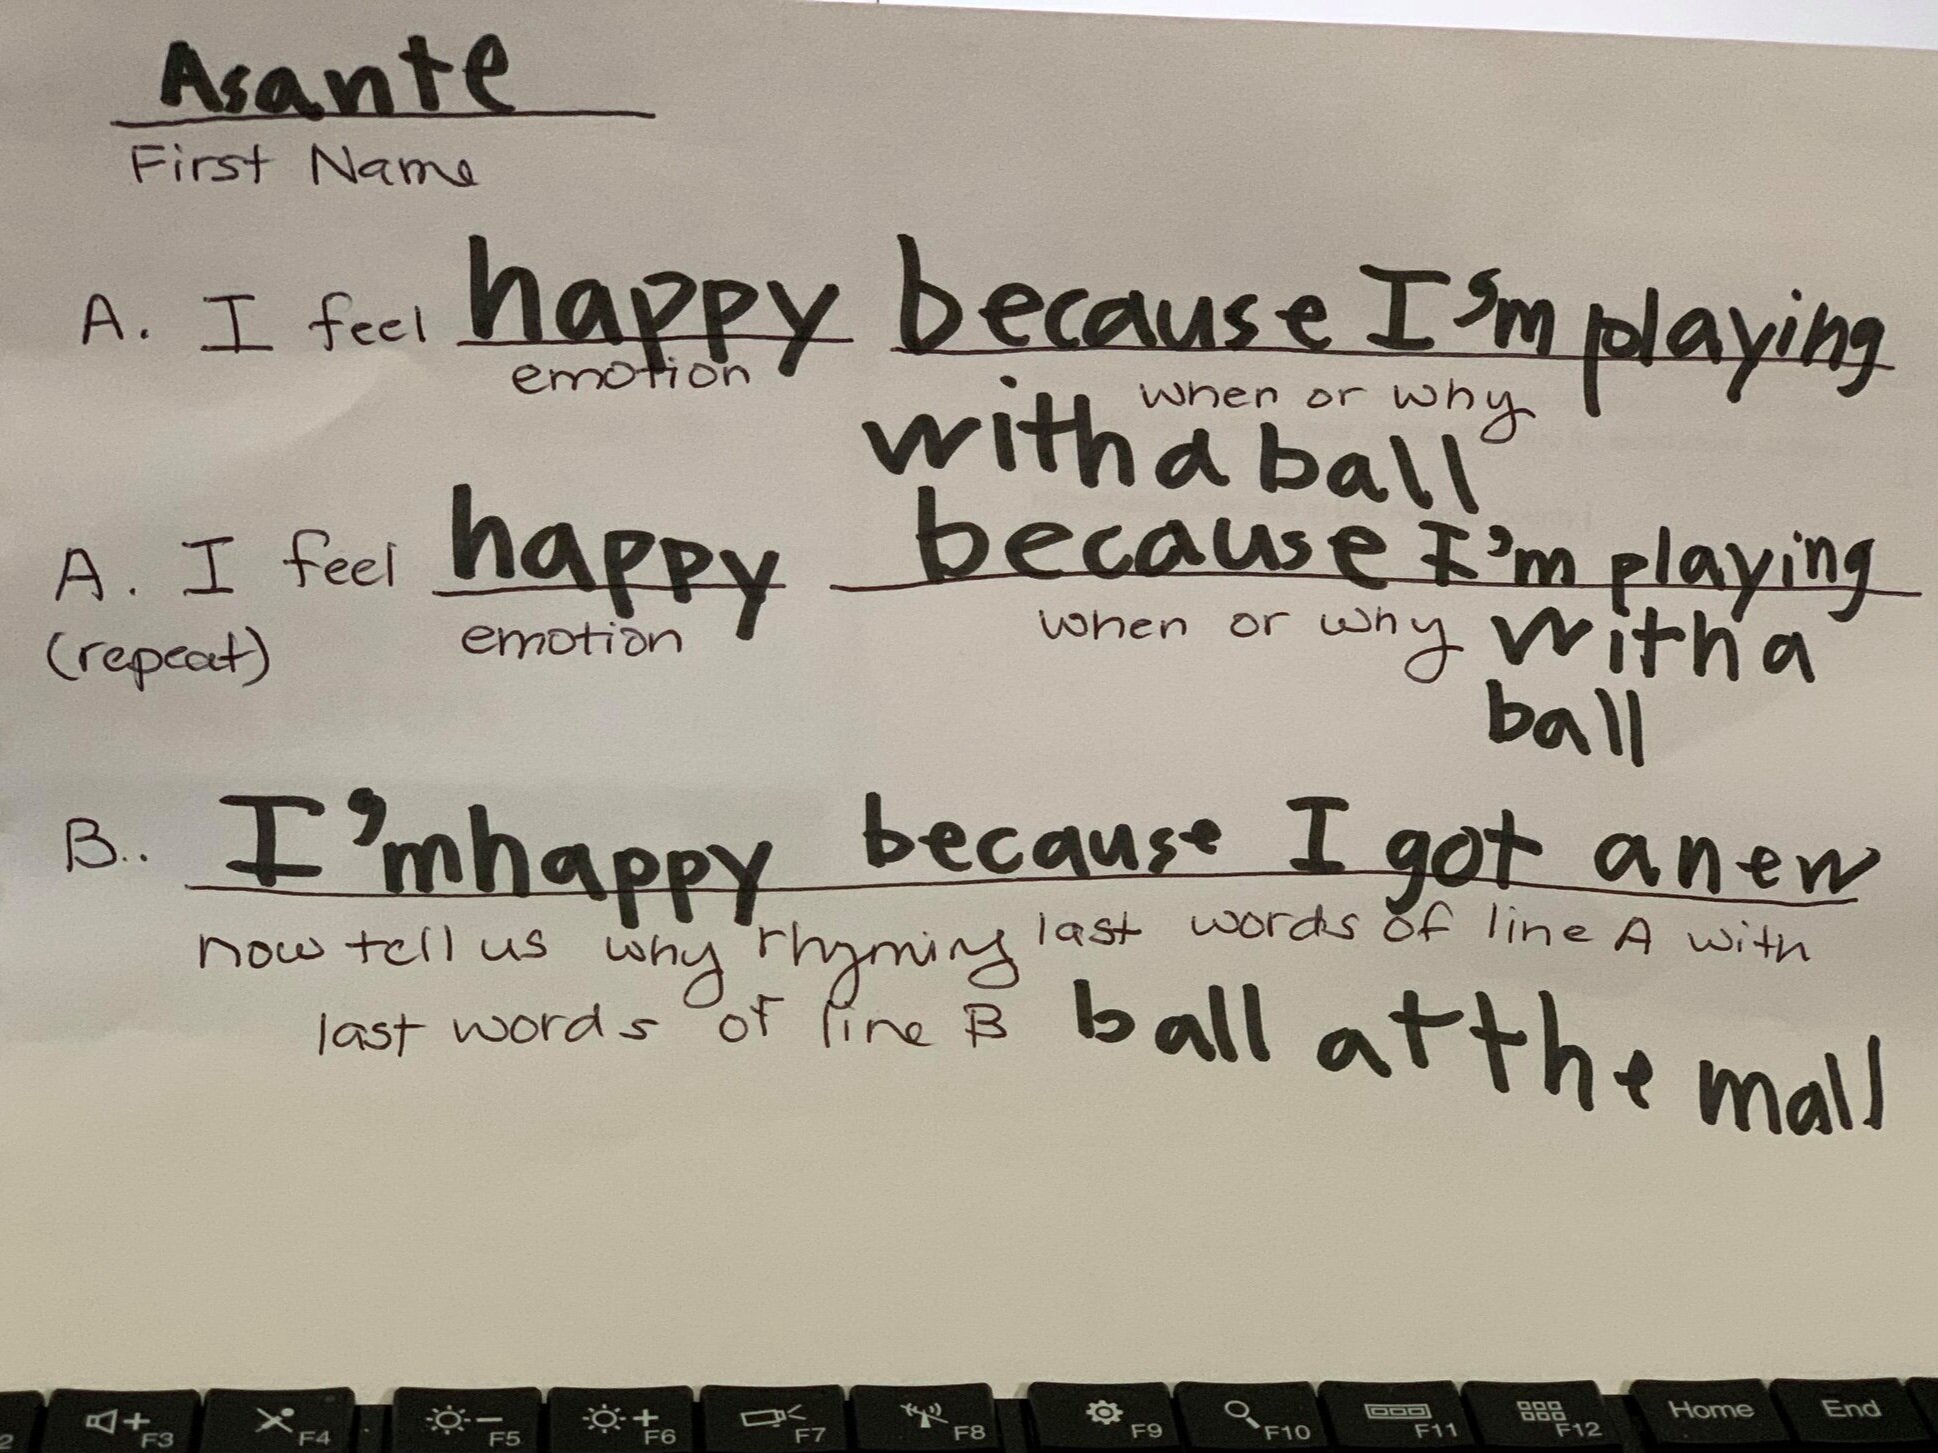 Asante
First Name
A. I feel happy because I'm playing
emotion when or why
with a ball
A. I feel happy because I'm playing
(repeat) emotion when or why with a
ball
B.. I'm happy because I got a new
now tell us why rhyming last words of line A with
last words of line B ball at the mall
2 F3 F4 F5 F6 F7 F8 F9 F10 F11 F12 Home End